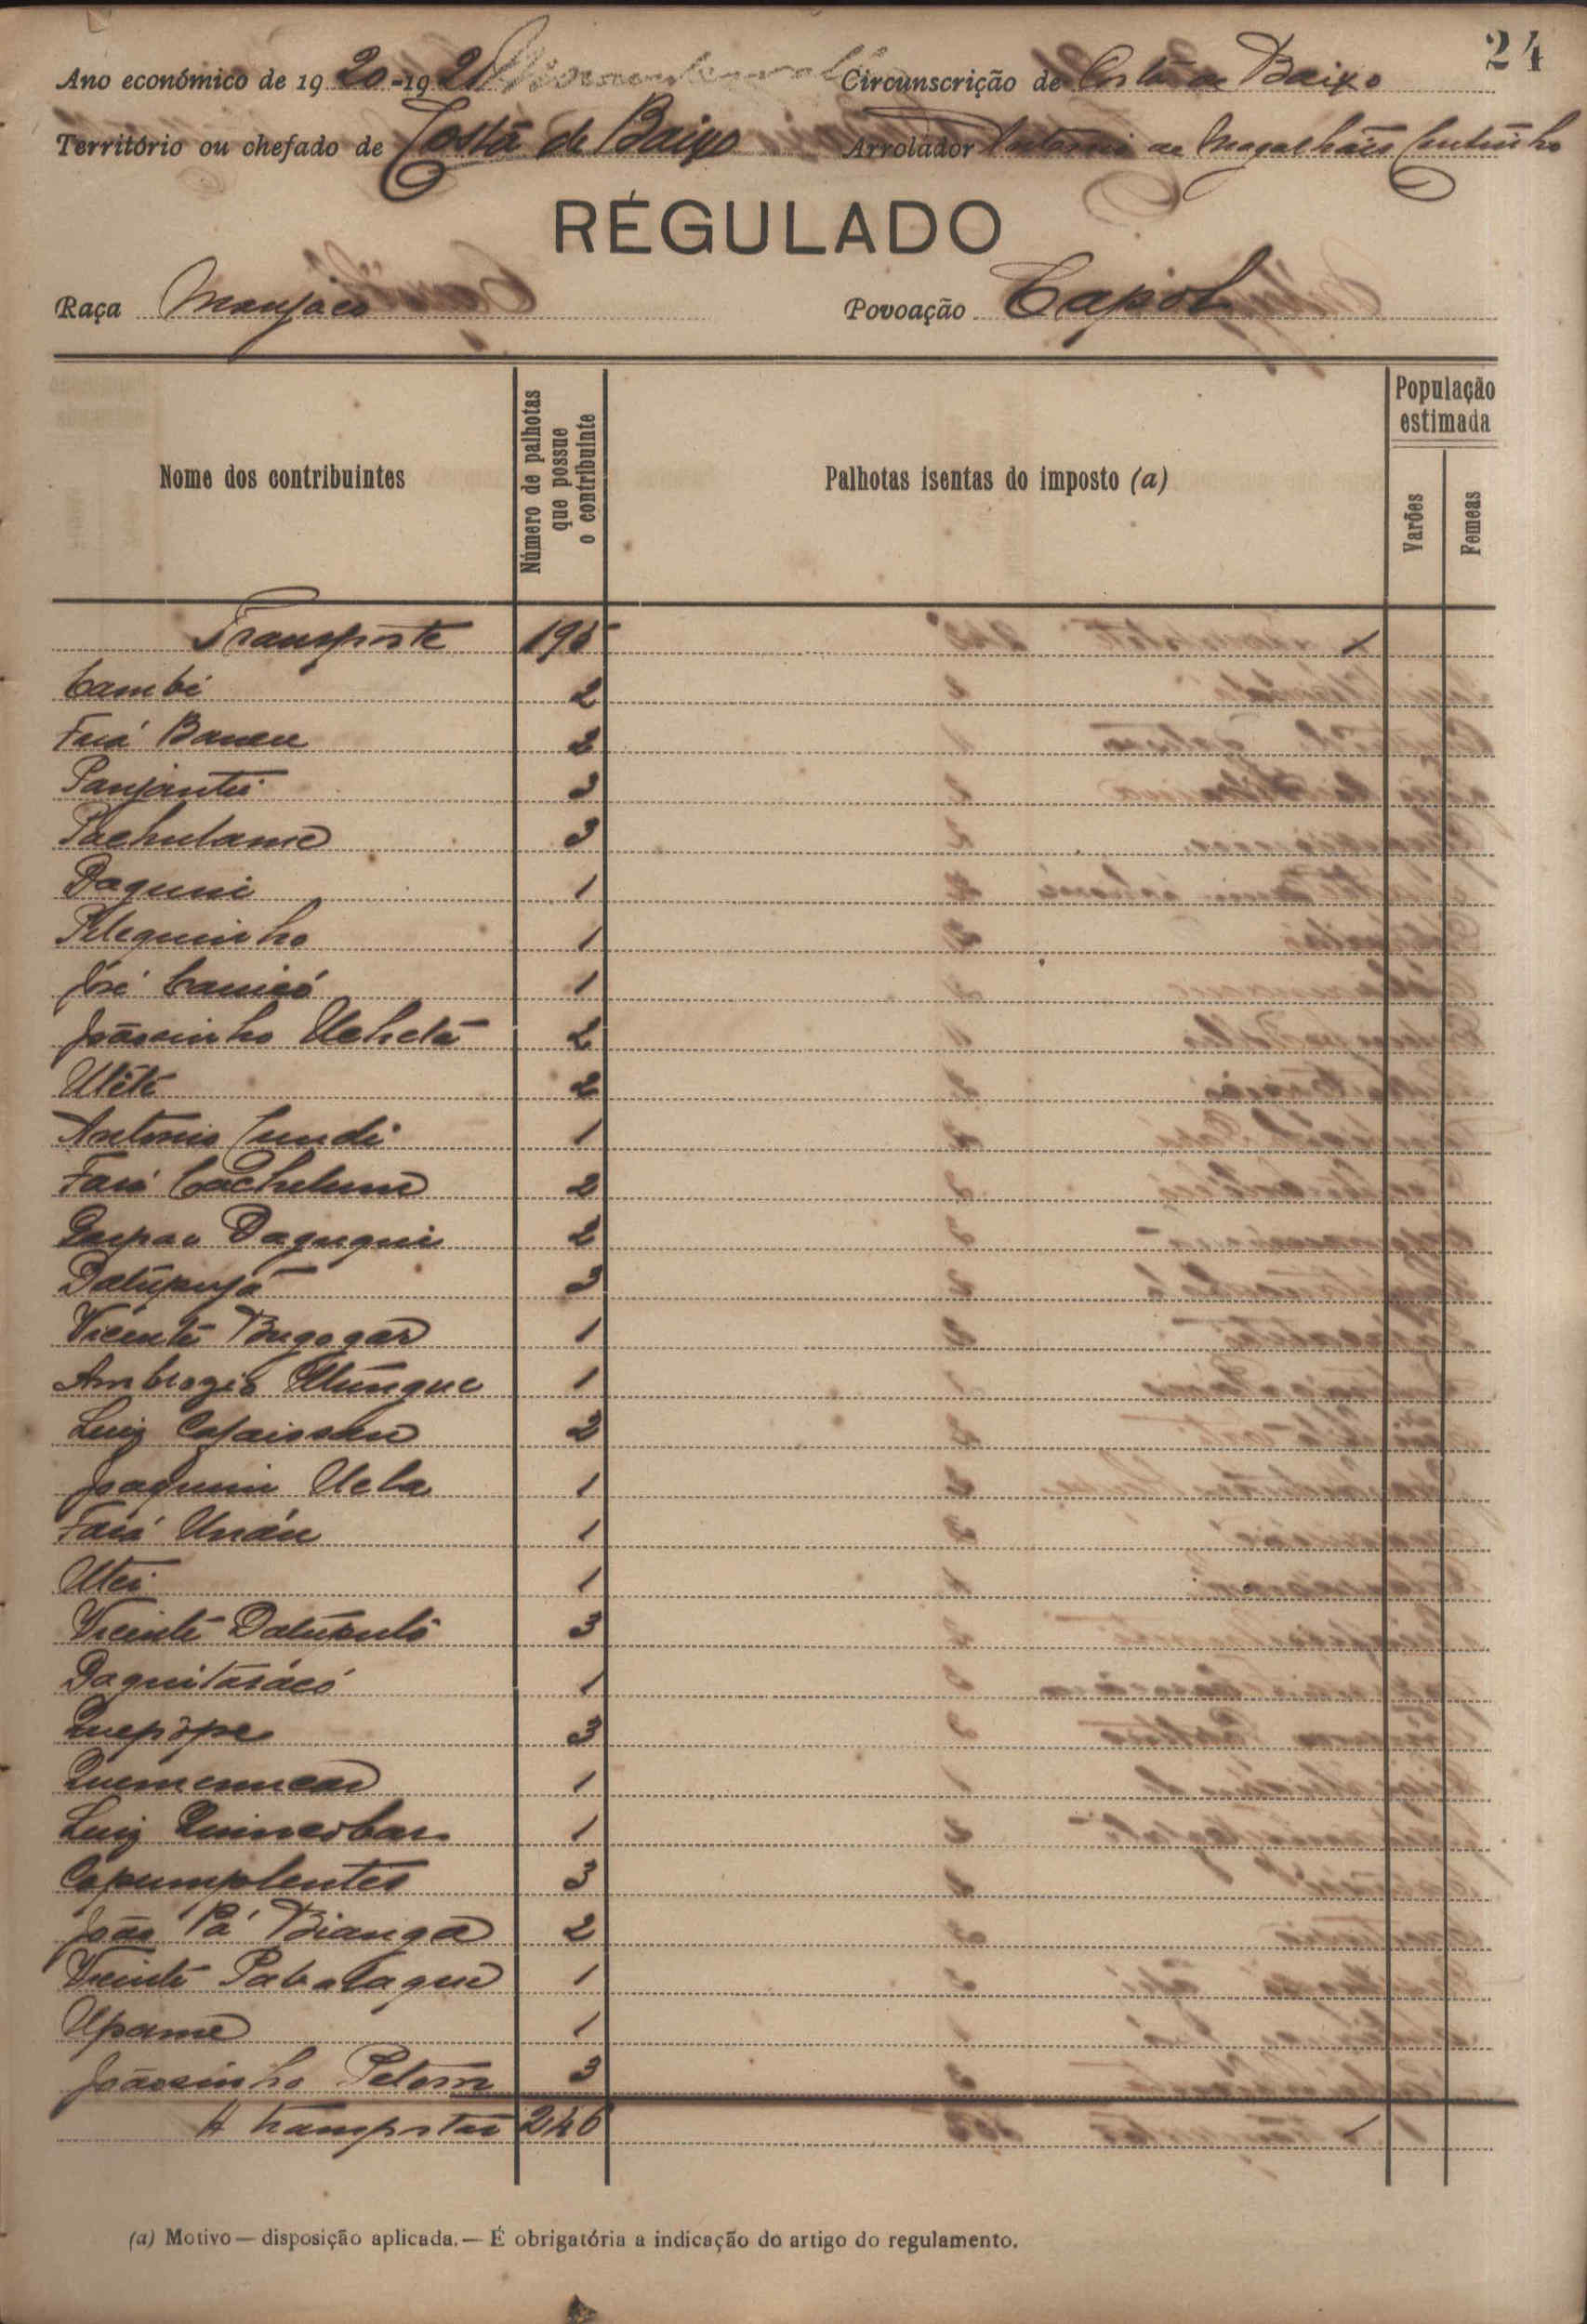 24
Ano económico de 1920-1921 Circunscrição de Costa de Baixo
Território ou chefado de Costa de Baixo Arrolador Antonio de Magalhães Coutinho
RÉGULADO
Raça Manjaco Povoação Capol
Nome dos contribuintes
Número de palhotas que possue o contribuinte
Palhotas isentas do imposto (a)
População estimada
Varões
Femeas
Transporte 195
Cambi 2
Faiá 2
Panjanti 3
Pachulame 3
Daquini 1
Pelequinho 1
José 1
Joãosinho Uchetá 2
Utété 2
Antonio Cundi 1
Faiá Cachulume 2
Gaspar Daquqni 2
Datúpujá 3
Vicente Bugogar 1
Ambrozio 1
Luiz Cajaissan 2
Joaquim Uela 1
Faiá Unán 1
Utei 1
Vicente Datúpulô 3
Daquitasácó 1
Quepópe 3
Quemenucar 1
Luiz Quinerbar 1
Capumplentes 3
João Pá Bianga 2
Vicente Pabalaque 1
Upame 1
Joãosinho Petom 3
A transportar 246
(a) Motivo — disposição aplicada. — É obrigatória a indicação do artigo do regulamento.